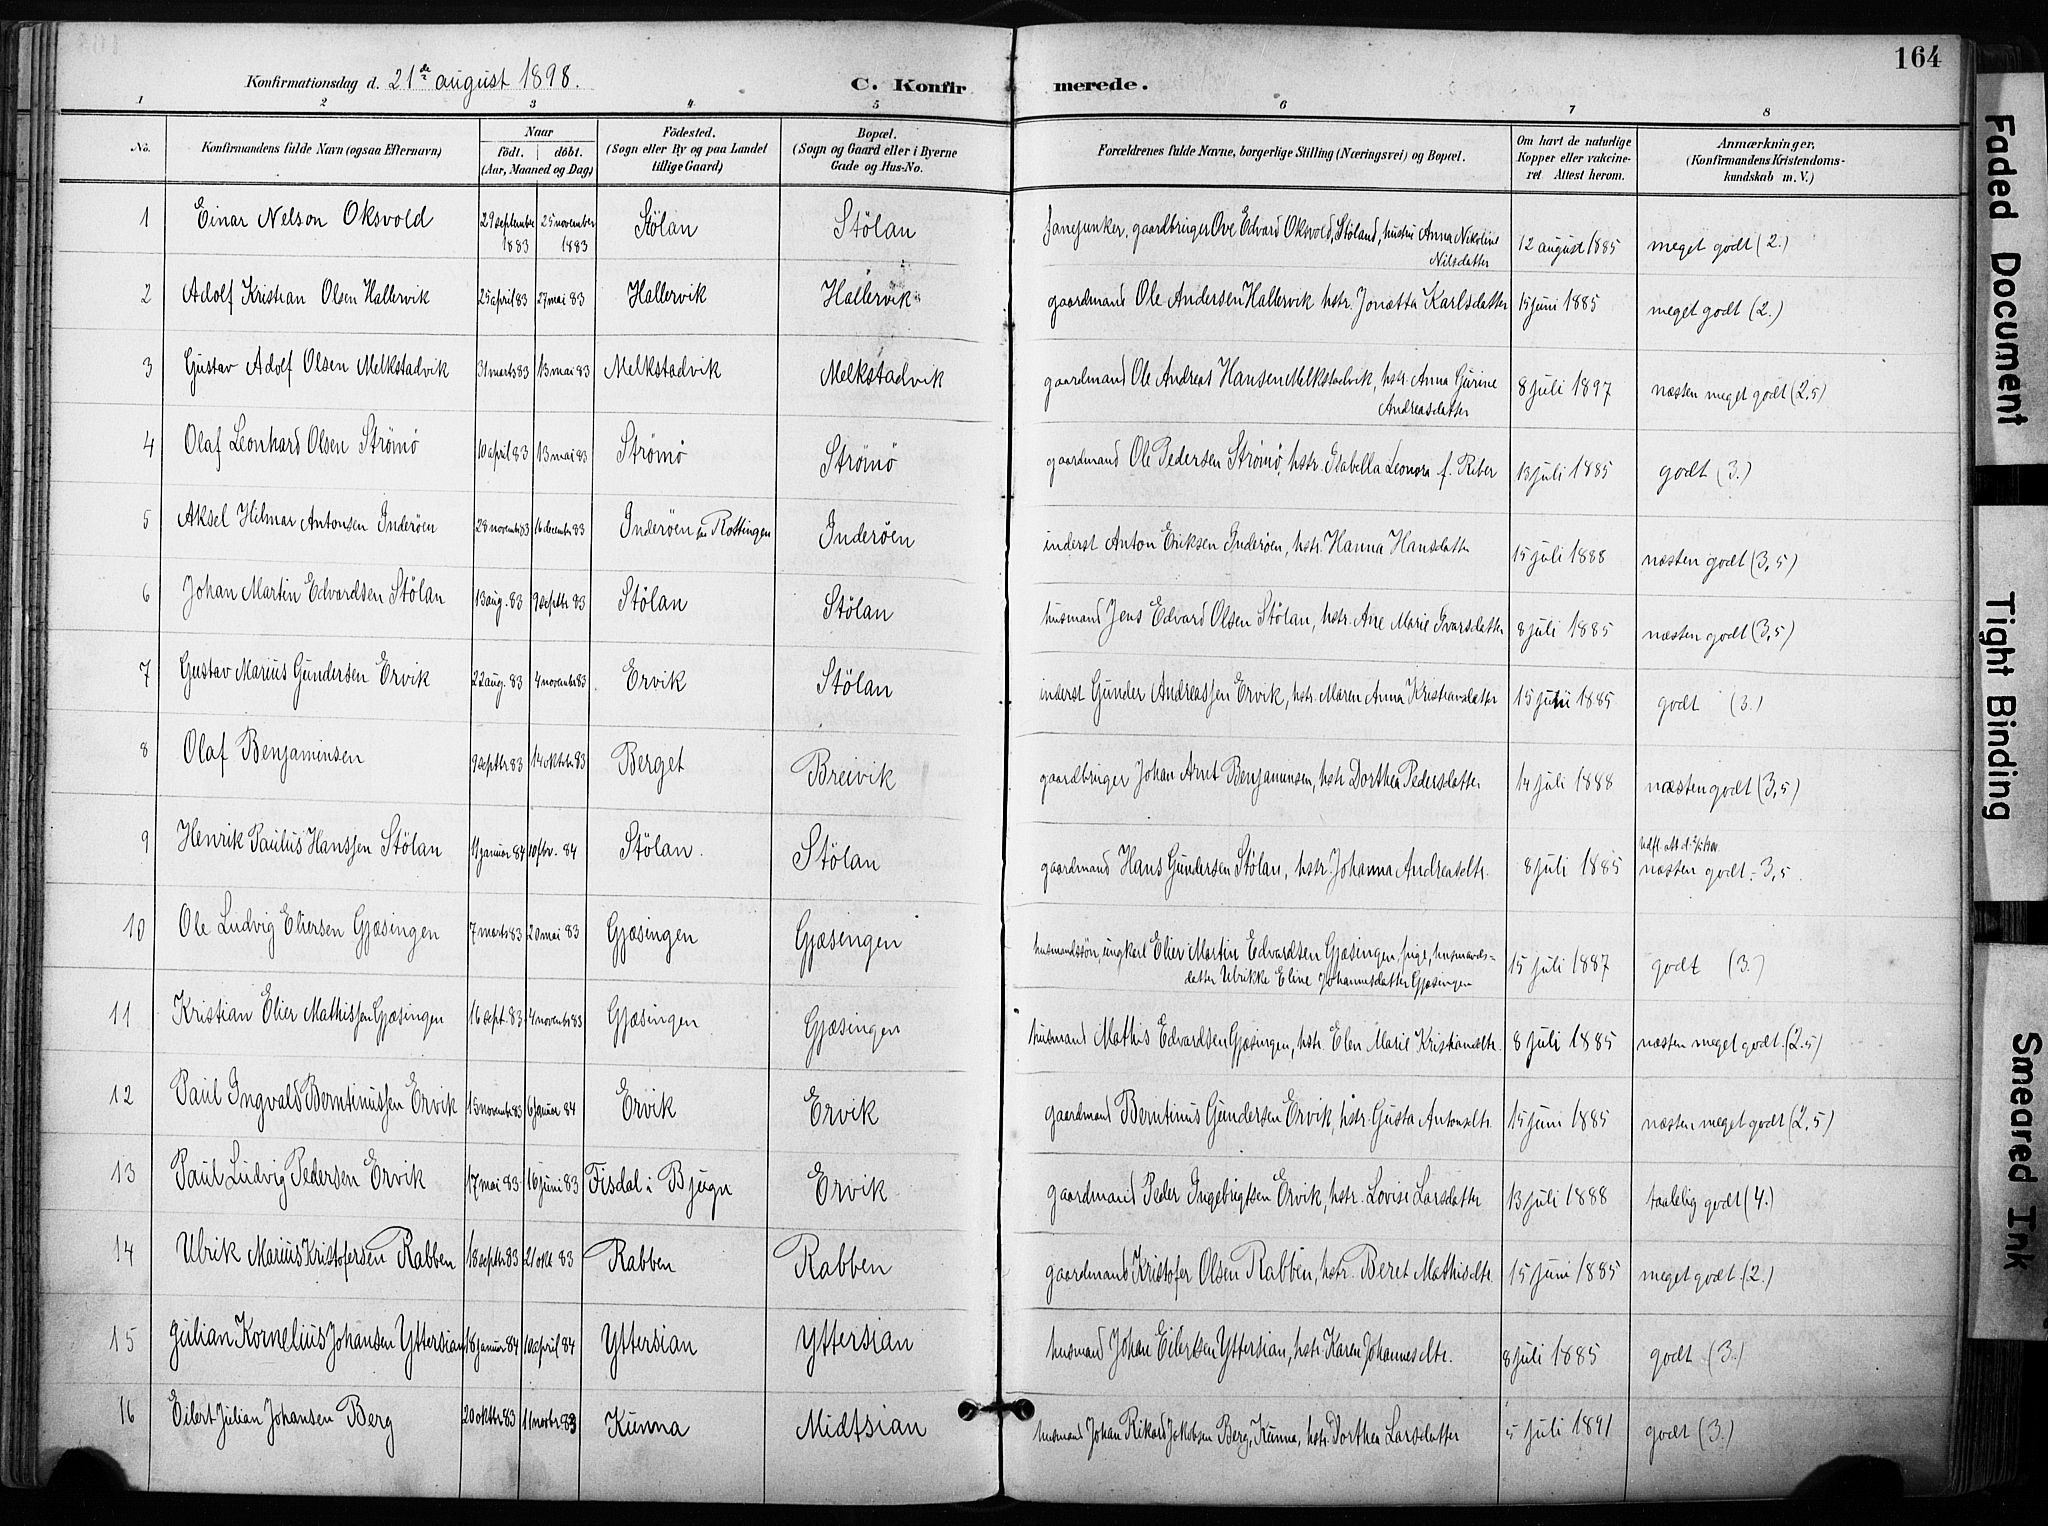 164
Konfirmationsdag d. 21de august 1898.
C. Konfirmerede.
1 2 3 4 5 6 7 8
No.
Konfirmandens fulde Navn (ogsaa Efternavn)
Naar
födt. döbt.
(Aar, Maaned og Dag)
Födested.
(Sogn eller By og paa Landet
tillige Gaard)
Bopæl.
(Sogn og Gaard eller i Byerne
Gade og Hus-No.
Forældrenes fulde Navne, borgerlige Stilling (Næringsvei) og Bopæl.
Om havt de naturlige
Kopper eller vakcine-
ret Attest herom.
Anmærkninger,
(Konfirmandens Kristendoms-
kundskab m. V.)
1 Einar Nelson Oksvold 29 septembr 1883 25 november 1883 Stölan Stölan fanejunker, gaardbruger Ove Edvard Oksvold, Stöland, hustru Anna Nikoline
Nilsdatter 12 august 1885 meget godt (2.)
2 Adolf Kristian Olsen Hallervik 25 april 83 27 mai 83 Hallervik Hallervik gaardmand Ole Andersen Hallervik hstr. Jonætta Karlsdatter 15 juni 1885 meget godt (2.)
3 Gustav Adolf Olsen Melkstadvik 31 marts 83 13 mai 83 Melkstadvik Melkstadvik gaardmand Ole Andreas Hansen Melkstadvik, hstr. Anna Gurine
Andreasdatter 8 juli 1897 næsten meget godt (2,5)
4 Olaf Leonhard Olsen Strömö 10 april 83 13 mai 83 Strömö Strömö gaardmand Ole Pedersen Strömö, hstr. Isabella Leonora f. Riber 13 juli 1885 godt (3.)
5 Aksel Hilmar Antonsen Inderöen 28 novembr 83 16 december 83 Inderöen Rottingen Inderöen inderst Anton Eriksen Inderöen, hstr. Hanna Hansdatter 15 juli 1888 næsten godt (3,5)
6 Johan Martin Edvardsen Stölan 13 aug. 83 9 septbr 83 Stölan Stölan husmand Jens Edvard Olsen Stölan, hstr. Ane Marie Ivarsdatter 8 juli 1885 næsten godt (3,5)
7 Gustav Marius Gundersen Ervik 22 aug. 83 4 novembr 83 Ervik Stölan inderst Gunder Andreassen Ervik, hstr. Maren Anna Kristiansdatter 15 juni 1885 godt (3.)
8 Olaf Benjaminsen 9 septbr 83 14 oktbr 83 Berget Breivik gaardbruger Johan Arnt Benjaminsen, hstr Dorthea Pedersdatter 14 juli 1888 næsten godt (3,5)
9 Henrik Paulus Hanssen Stölan 11 januar 84 10 fbr. 84 Stölan. Stölan gaardmand Hans Gundersen Stölan, hstr. Johanna Andreasdtr. 8 juli 1885 Udfl. att. d.
næsten godt - 3,5.
10 Ole Ludvig Eliersen Gjæsingen 7 marts 83 20 mai 83 Gjæsingen Gjæsingen husmandssön, ungkarl Elier Martin Edvardsen Gjæsingen, pige, husmands-
datter Ulrikke Eline Johannesdatter Gjæsingen 15 juli 1887 godt (3.)
11 Kristian Elier Mathissen Gjæsingen 16 sept. 83 4 novembr 83 Gjæsingen Gjæsingen husmand Mathis Edvardsen Gjæsingen, hstr. Elen Marie Kristiansdtr. 8 juli 1885 næsten meget godt. (2.5)
12 Paul Ingvald Berntinussen Ervik 15 novembr 83 6 januar 84 Ervik Ervik gaardmand Berntinus Gundersen Ervik, hstr. Gusta Antonsdtr. 15 juni 1885 næsten meget godt (2,5)
13 Paul Ludvig Pedersen Ervik 17 mai 83 16 juni 83 Fisdal i Bjugn Ervik gaardmand Peder Ingebrigtsen Ervik, hstr. Lovise Larsdatter 13 juli 1888 taalelig godt (4.)
14 Ulrik Marius Kristofersen Rabben 18 septbr 83 21 okt 83 Rabben Rabben gaardmand Kristofer Olsen Rabben, hstr. Beret Mathisdtr. 15 juni 1885 meget godt. (2.)
15 Julian Kornelius Johansen Yttersian 18 januar 84 10 april 84 Yttersian Yttersian husmand Johan Eilertsen Yttersian, hstr. Karen Johannesdtr. 8 juli 1885 godt (3.)
16 Eilert Julian Johansen Berg 20 oktbr 83 11 novbr 83 Kunna Midtsian husmand Johan Rikard Jakobsen Berg, Kunna, hstr. Dorthea Larsdatter 5 juli 1891 godt (3.)
Faded Document
Tight Binding
Smeared Ink